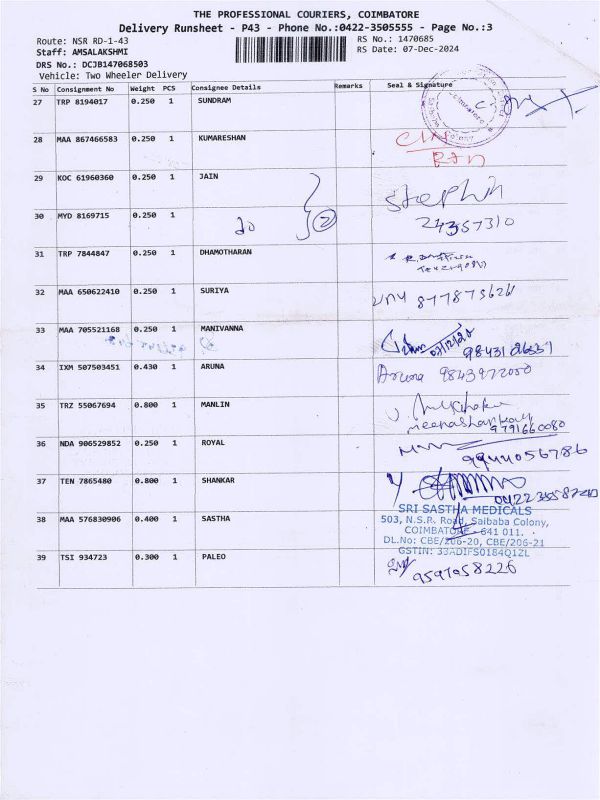 THE PROFESSIONAL COURIERS, COIMBATORE
Delivery Runsheet - P43 - Phone No.:0422-3505555 - Page No.:3
Route: NSR RD-1-43
RS No.: 1470685
Staff: AMSALAKSHMI
RS Date: 07-Dec-2024
DRS No.: DCJB147068503
Vehicle: Two Wheeler Delivery
S No Consignment No Weight PCS Consignee Details Remarks Seal & Signature
27 TRP 8194017 0.250 1 SUNDRAM
28 MAA 867466583 0.250 1 KUMARESHAN
29 KOC 61960360 0.250 1 JAIN
Stephin
30 MYD 8169715 0.250 1 2
31 TRP 7844847 0.250 1 DHAMOTHARAN
32 MAA 650622410 0.250 1 SURIYA
33 MAA 705521168 0.250 1 MANIVANNA
34 IXM 507503451 0.430 1 ARUNA Aruna 9843972050
35 TRZ 55067694 0.800 1 MANLIN
9791660080
36 NDA 906529852 0.250 1 ROYAL 9944056786
37 TEN 7865480 0.800 1 SHANKAR
SRI SASTHA MEDICALS
38 MAA 576830906 0.400 1 SASTHA 503, N.S.R. Road, Saibaba Colony,
COIMBATORE - 641 011.
DL.No: CBE/206-20, CBE/206-21
GSTIN: 33ADIFS0184Q1ZL
39 TSI 934723 0.300 1 PALEO
9597058226